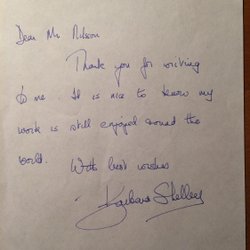 Dear Mr Nilson
Thank you for writing
to me. It is nice to know my
work is still enjoyed around the
world.
With best wishes
Barbara Shelley